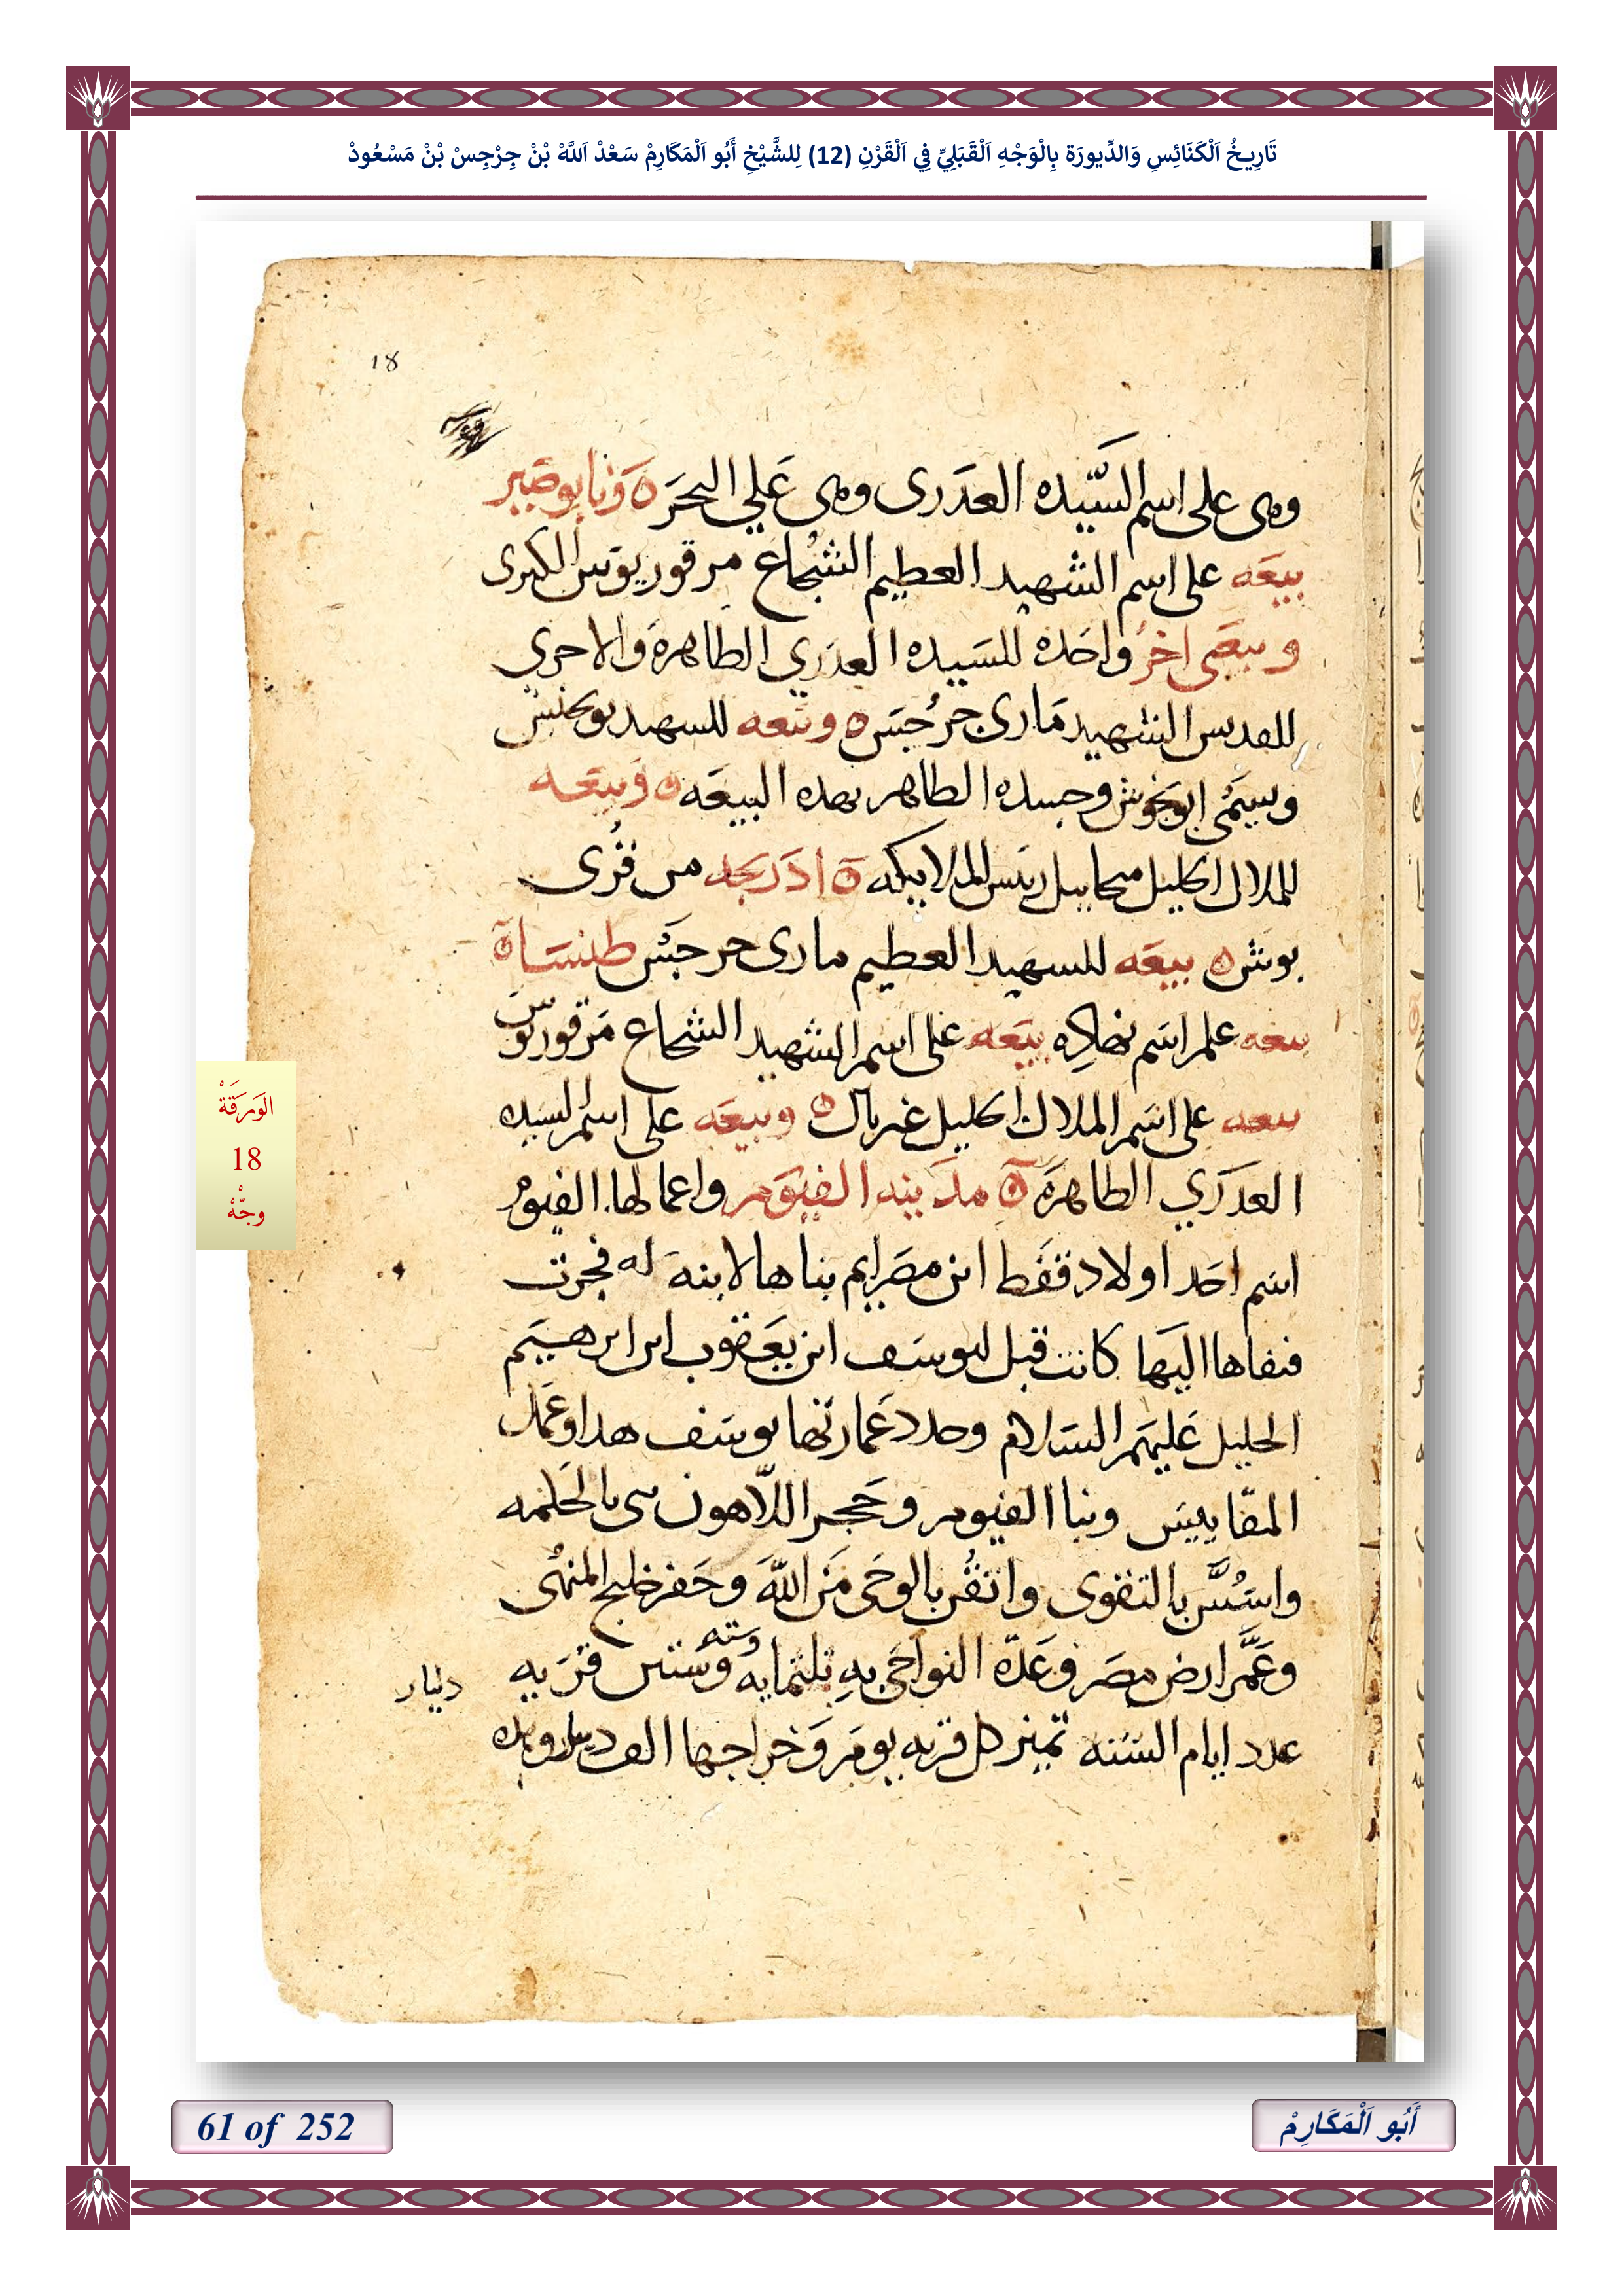 تَارِيخُ اَلْكَنَائِسِ وَالدِّيورَة بِالْوَجْهِ اَلْقَبَلِيِّ فِي اَلْقَرْنِ (12) لِلشَّيْخِ أَبُو اَلْمَكَارِمْ سَعْدْ اَللَّهْ بْنْ جِرْجِسْ بْنْ مَسْعُودْ
18
وهى على اسم السَّيّده العدَرى وهى عَلي البحَر ونابوصَير
بيعَه على اسم الشهيد العظيم الشجَاع مرقوريوس الكبرى
وبيعَى اخرُ واحَده للسَيده العدَري الطاهرهَ والاخرى
للقديس الشهيد مَارى جرُجيَس وبيعه للسهيد بوبخنس
وسيَمّى ابوبخوش وجسده الطاهر بهده البيعَه وَبيَعَه
للملاك الجليل ميخاييل رييس الملاييكه ادَربجه من قرُى
بوش بيعَه للسهيد العظيم مارى جرجيَس طنسَا
بيعه على اسَم بضاده بيَعَه على اسم الشهيد الشجاع مَرقوريوس
بيعه على اسَم الملاك الجليل غبريال وبيعَه على اسم السيده
العدَرَي الطاهرهَ مدَينه الفيوَم واعمالها الفيوم
اسَم احَد اولاد قفَط ابن مصَرايم بناها لابنهَ له فجرت
فنفاها اليَها كانت قبل ليوسَف ابن يعَقوب ابن ابرهيَم
الخليل عَليهَم السَلام وجدد عَمارتها يوسَف هدا وعَمَل
المقّاييَس وبنا الفيوم وحَجر اللّاهون بنى بالحَكمه
واسُسَّ بالتقوى واتقُن بالوحَى مَن اللهَ وحَفر خليج المنهُى
وعَمَّر ارض مصَر وعَدّه النواحَى بهِ تلثمايهَ وسته وسَتين قرَيه
دينار
عدد ايام السَنه تميز كل قريه يومَ وَخراجها الف
الوَرَقَةْ
18
وجّهْ
61 of 252
أَبُو اَلْمَكَارِمْ